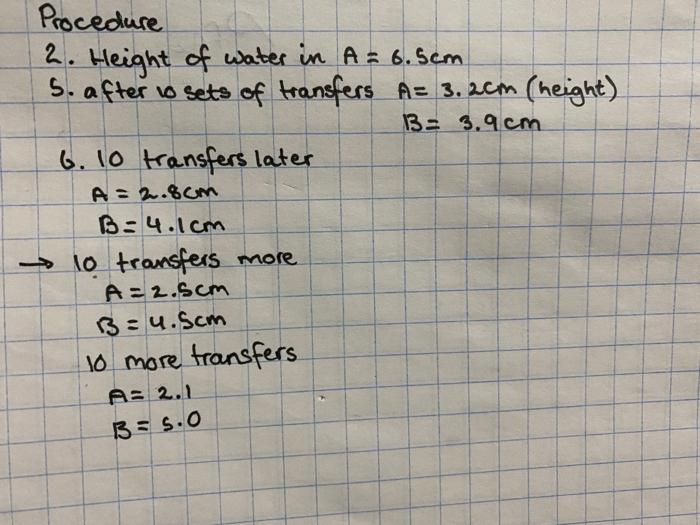 Procedure
2. Height of water in A = 6.5cm
5. after 10 sets of transfers A= 3.2cm (height)
B= 3.9cm
6. 10 transfers later
A = 2.8cm
B= 4.1cm
→ 10 transfers more
A = 2.5cm
B = 4.5cm
10 more transfers
A= 2.1
B= 5.0